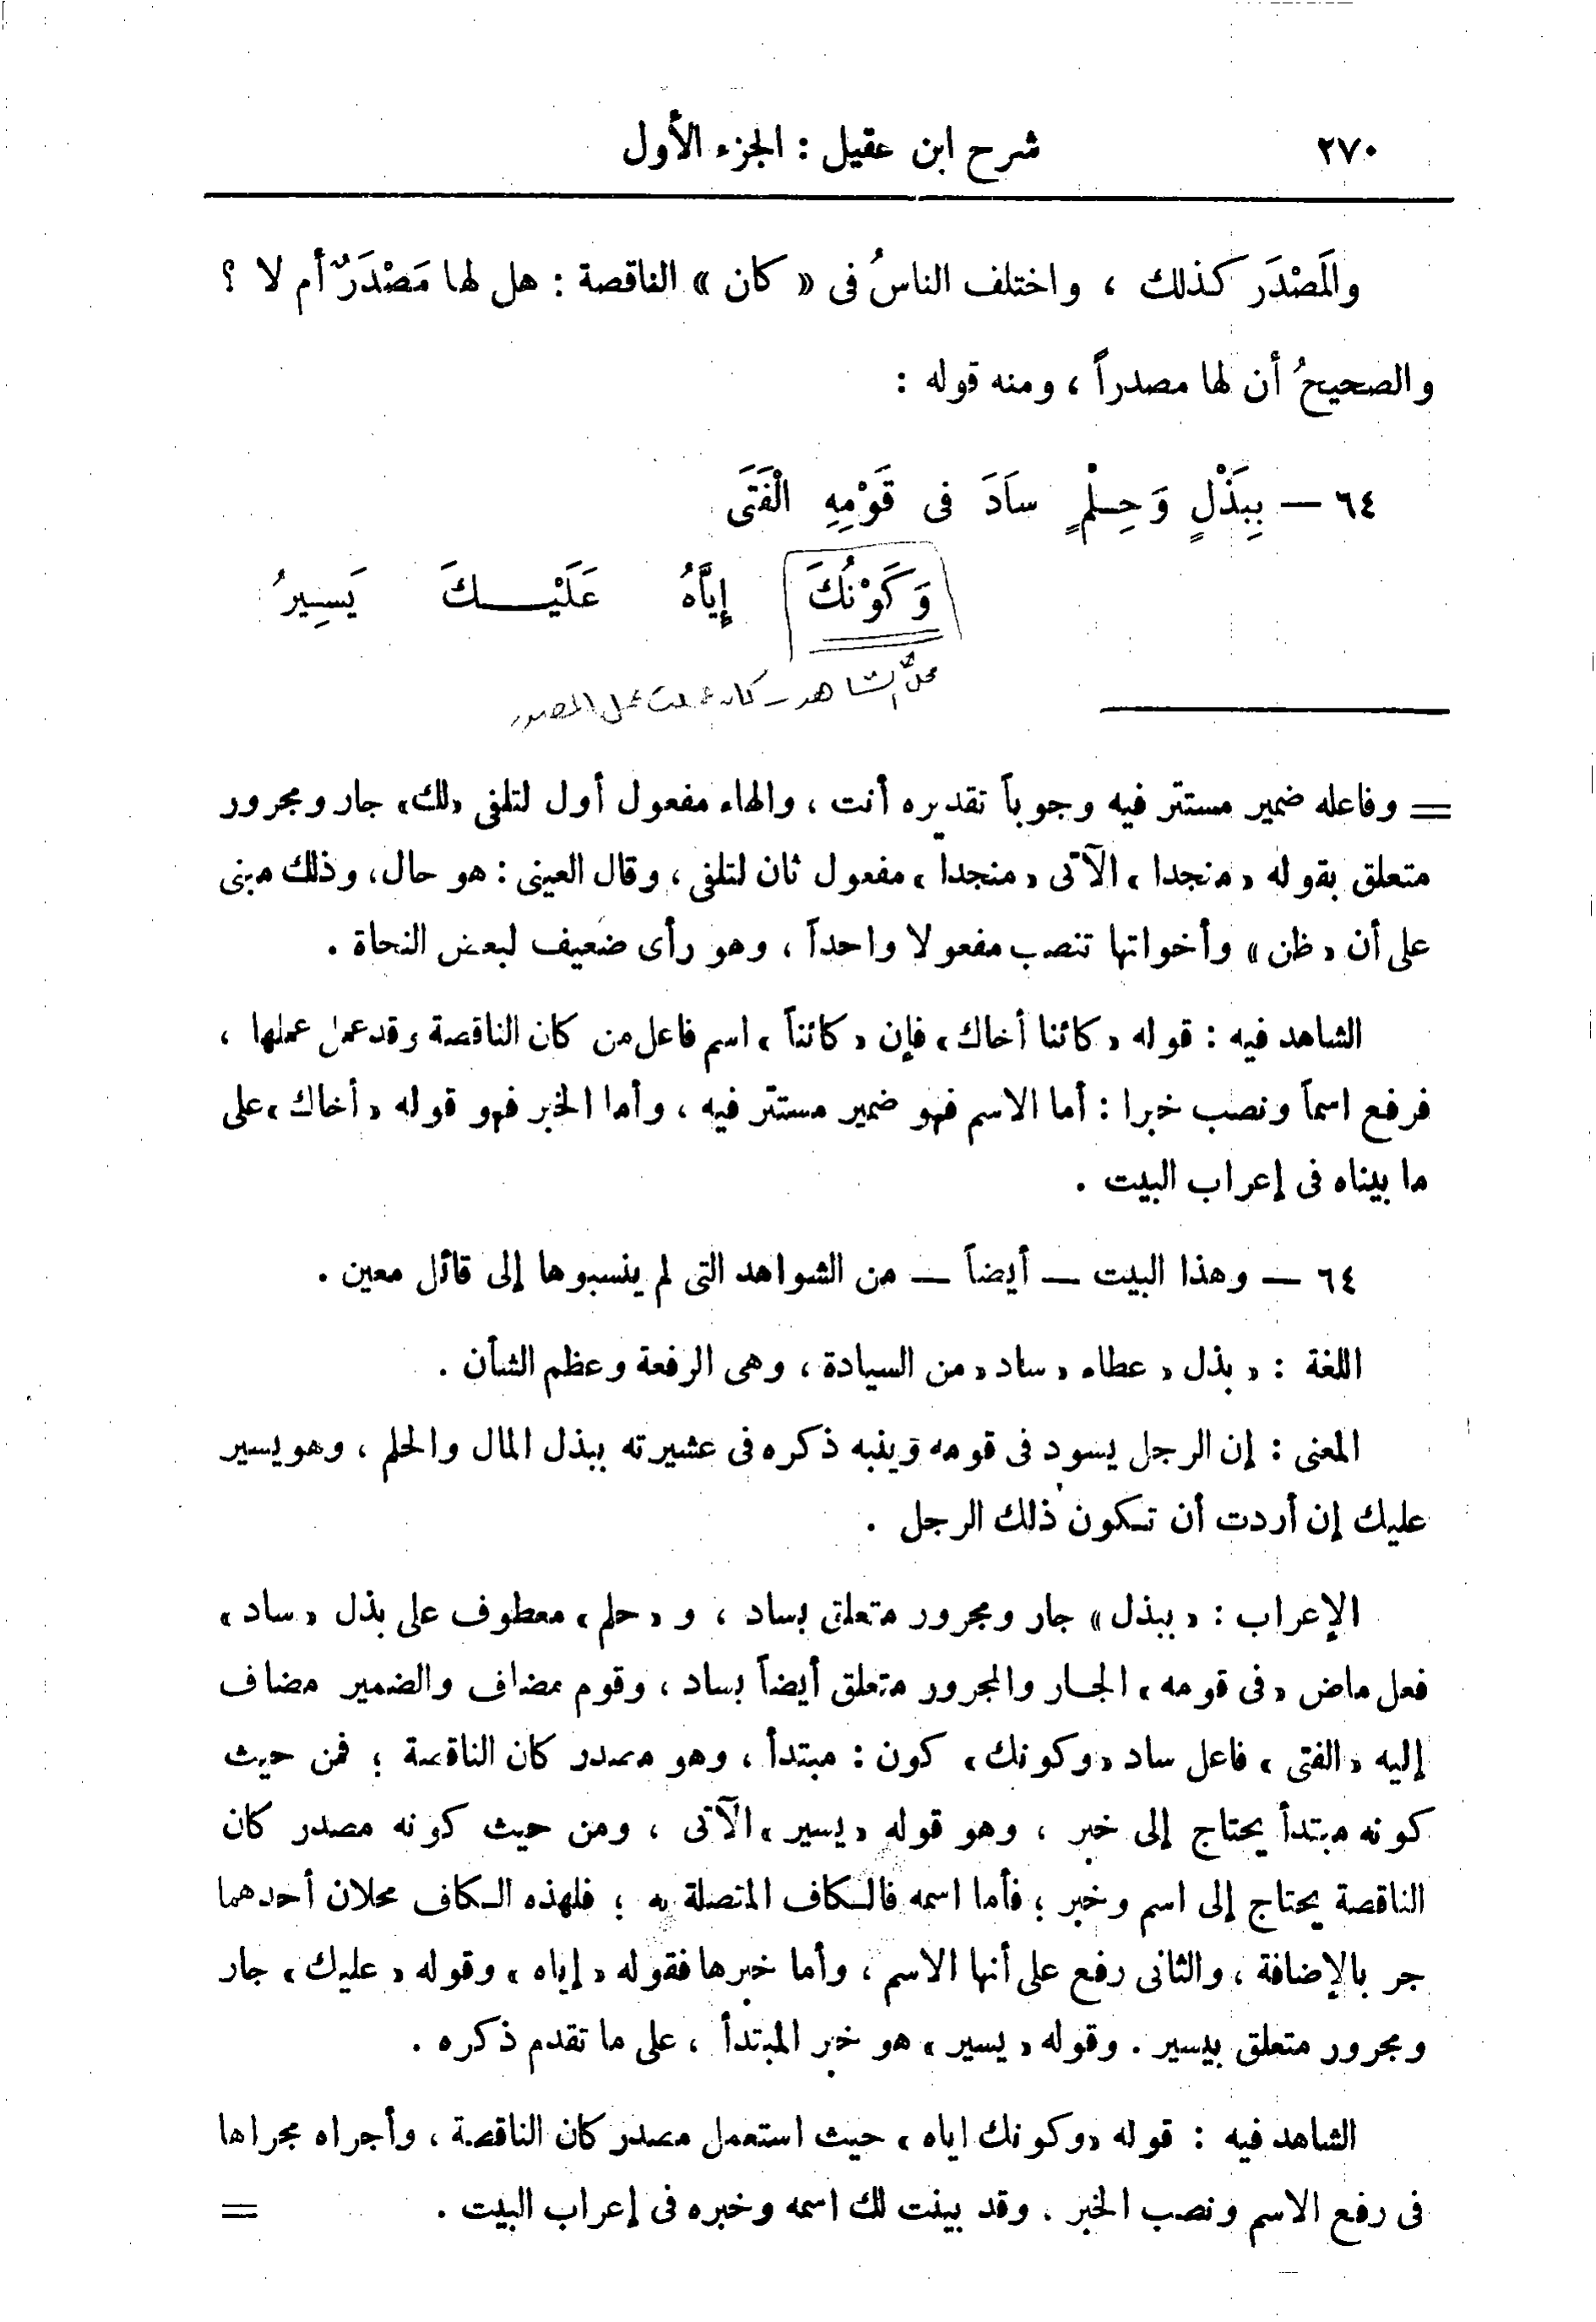 ٢٧٠ شرح ابن عقيل : الجزء الأول
والمَصْدَر كذلك ، واختلف الناسُ فى « كان » الناقصة : هل لها مَصْدَرٌ أم لا ؟
والصحيحُ أن لها مصدراً ، ومنه قوله :
٦٤ — بِبَذْلٍ وَحِـلْمٍ سَادَ فى قَوْمِهِ الْفَتَى
وَكَوْنُكَ إِيَّاهُ عَلَيْـــكَ يَسِيرُ
محلّ الشاهد - كان عملت عمل المصدر
= وفاعله ضمير مستتر فيه وجوباً تقديره أنت ، والهاء مفعول أول لتلفى «لك» جار ومجرور
متعلق بقوله « منجدا » الآتى « منجداً » مفعول ثان لتلفى ، وقال العينى : هو حال، وذلك مبنى
على أن « ظن » وأخواتها تنصب مفعولا واحداً ، وهو رأى ضعيف لبعض النحاة .
الشاهد فيه : قوله « كائنا أخاك » فإن « كائناً » اسم فاعل من كان الناقصة وقد عمل عملها ،
فرفع اسماً ونصب خبرا : أما الاسم فهو ضمير مستتر فيه ، وأما الخبر فهو قوله « أخاك » على
ما بيناه فى إعراب البيت .
٦٤ — وهذا البيت — أيضاً — من الشواهد التى لم ينسبوها إلى قائل معين .
اللغة : « بذل » عطاء « ساد » من السيادة ، وهى الرفعة وعظم الشأن .
المعنى : إن الرجل يسود فى قومه وينبه ذكره فى عشيرته ببذل المال والحلم ، وهو يسير
عليك إن أردت أن تـكون ذلك الرجل .
الإعراب : « ببذل » جار ومجرور متعلق بساد ، و « حلم » معطوف على بذل « ساد »
فعل ماض « فى قومه » الجـار والمجرور متعلق أيضاً بساد ، وقوم مضاف والضمير مضاف
إليه « الفتى » فاعل ساد « وكونك » كون : مبتدأ ، وهو مصدر كان الناقصة ؛ فمن حيث
كونه مبتدأ يحتاج إلى خبر ، وهو قوله « يسير » الآتى ، ومن حيث كونه مصدر كان
الناقصة يحتاج إلى اسم وخبر ؛ فأما اسمه فالـكاف المتصلة به ؛ فلهذه الـكاف محلان أحدهما
جر بالإضافة ، والثانى رفع على أنها الاسم ، وأما خبرها فقوله « إياه » وقوله « عليك » جار
ومجرور متعلق بيسير . وقوله « يسير » هو خبر المبتدأ ، على ما تقدم ذكره .
الشاهد فيه : قوله «وكونك اياه » حيث استعمل مصدر كان الناقصة ، وأجراه مجراها
فى رفع الاسم ونصب الخبر . وقد بينت لك اسمه وخبره فى إعراب البيت . =